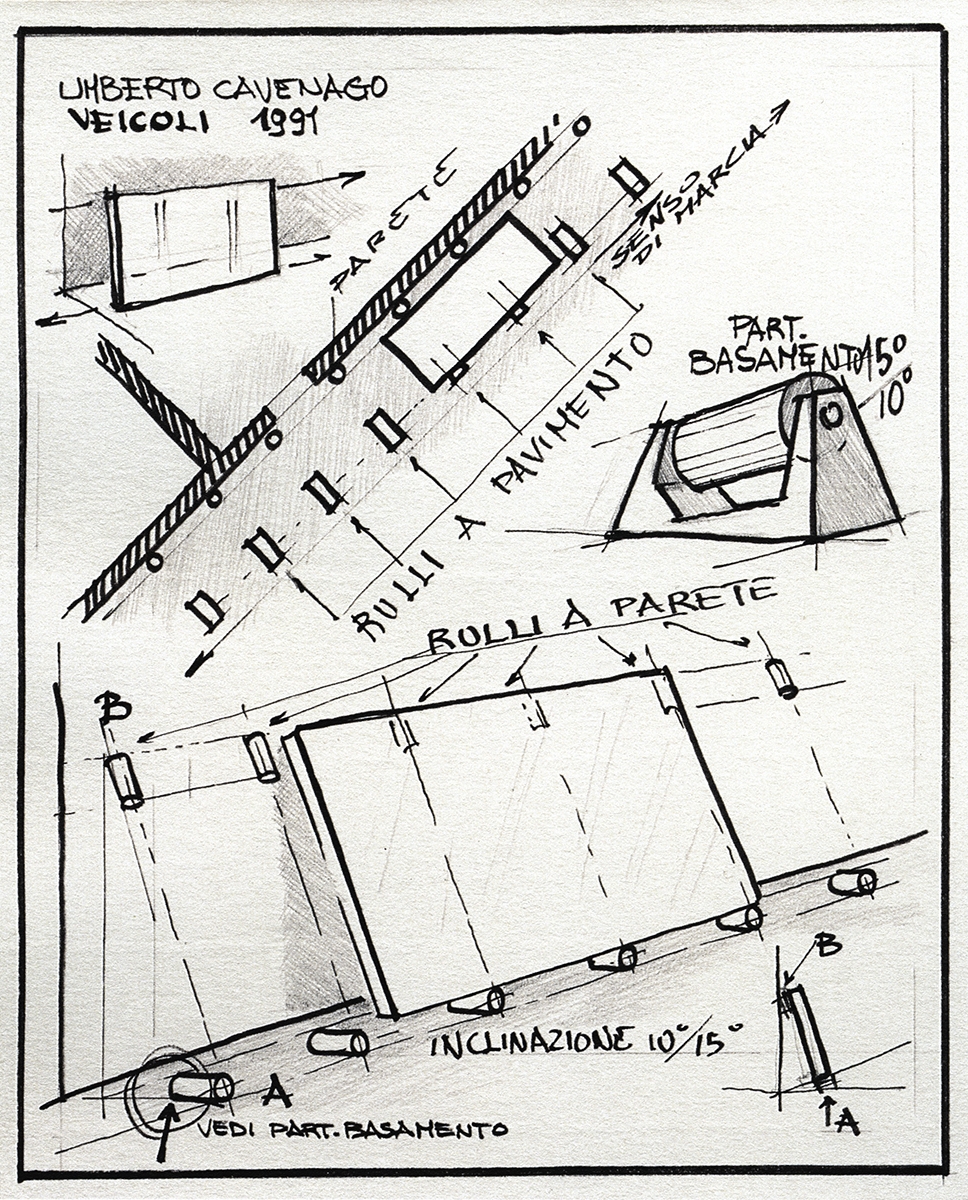 UMBERTO CAVENAGO
VEICOLI 1991
PARETE
SENSO
DI MARCIA
PART.
BASAMENTO 15°
10°
RULLI A PAVIMENTO
RULLI A PARETE
B
B
INCLINAZIONE 10°/15°
A
VEDI PART. BASAMENTO
A